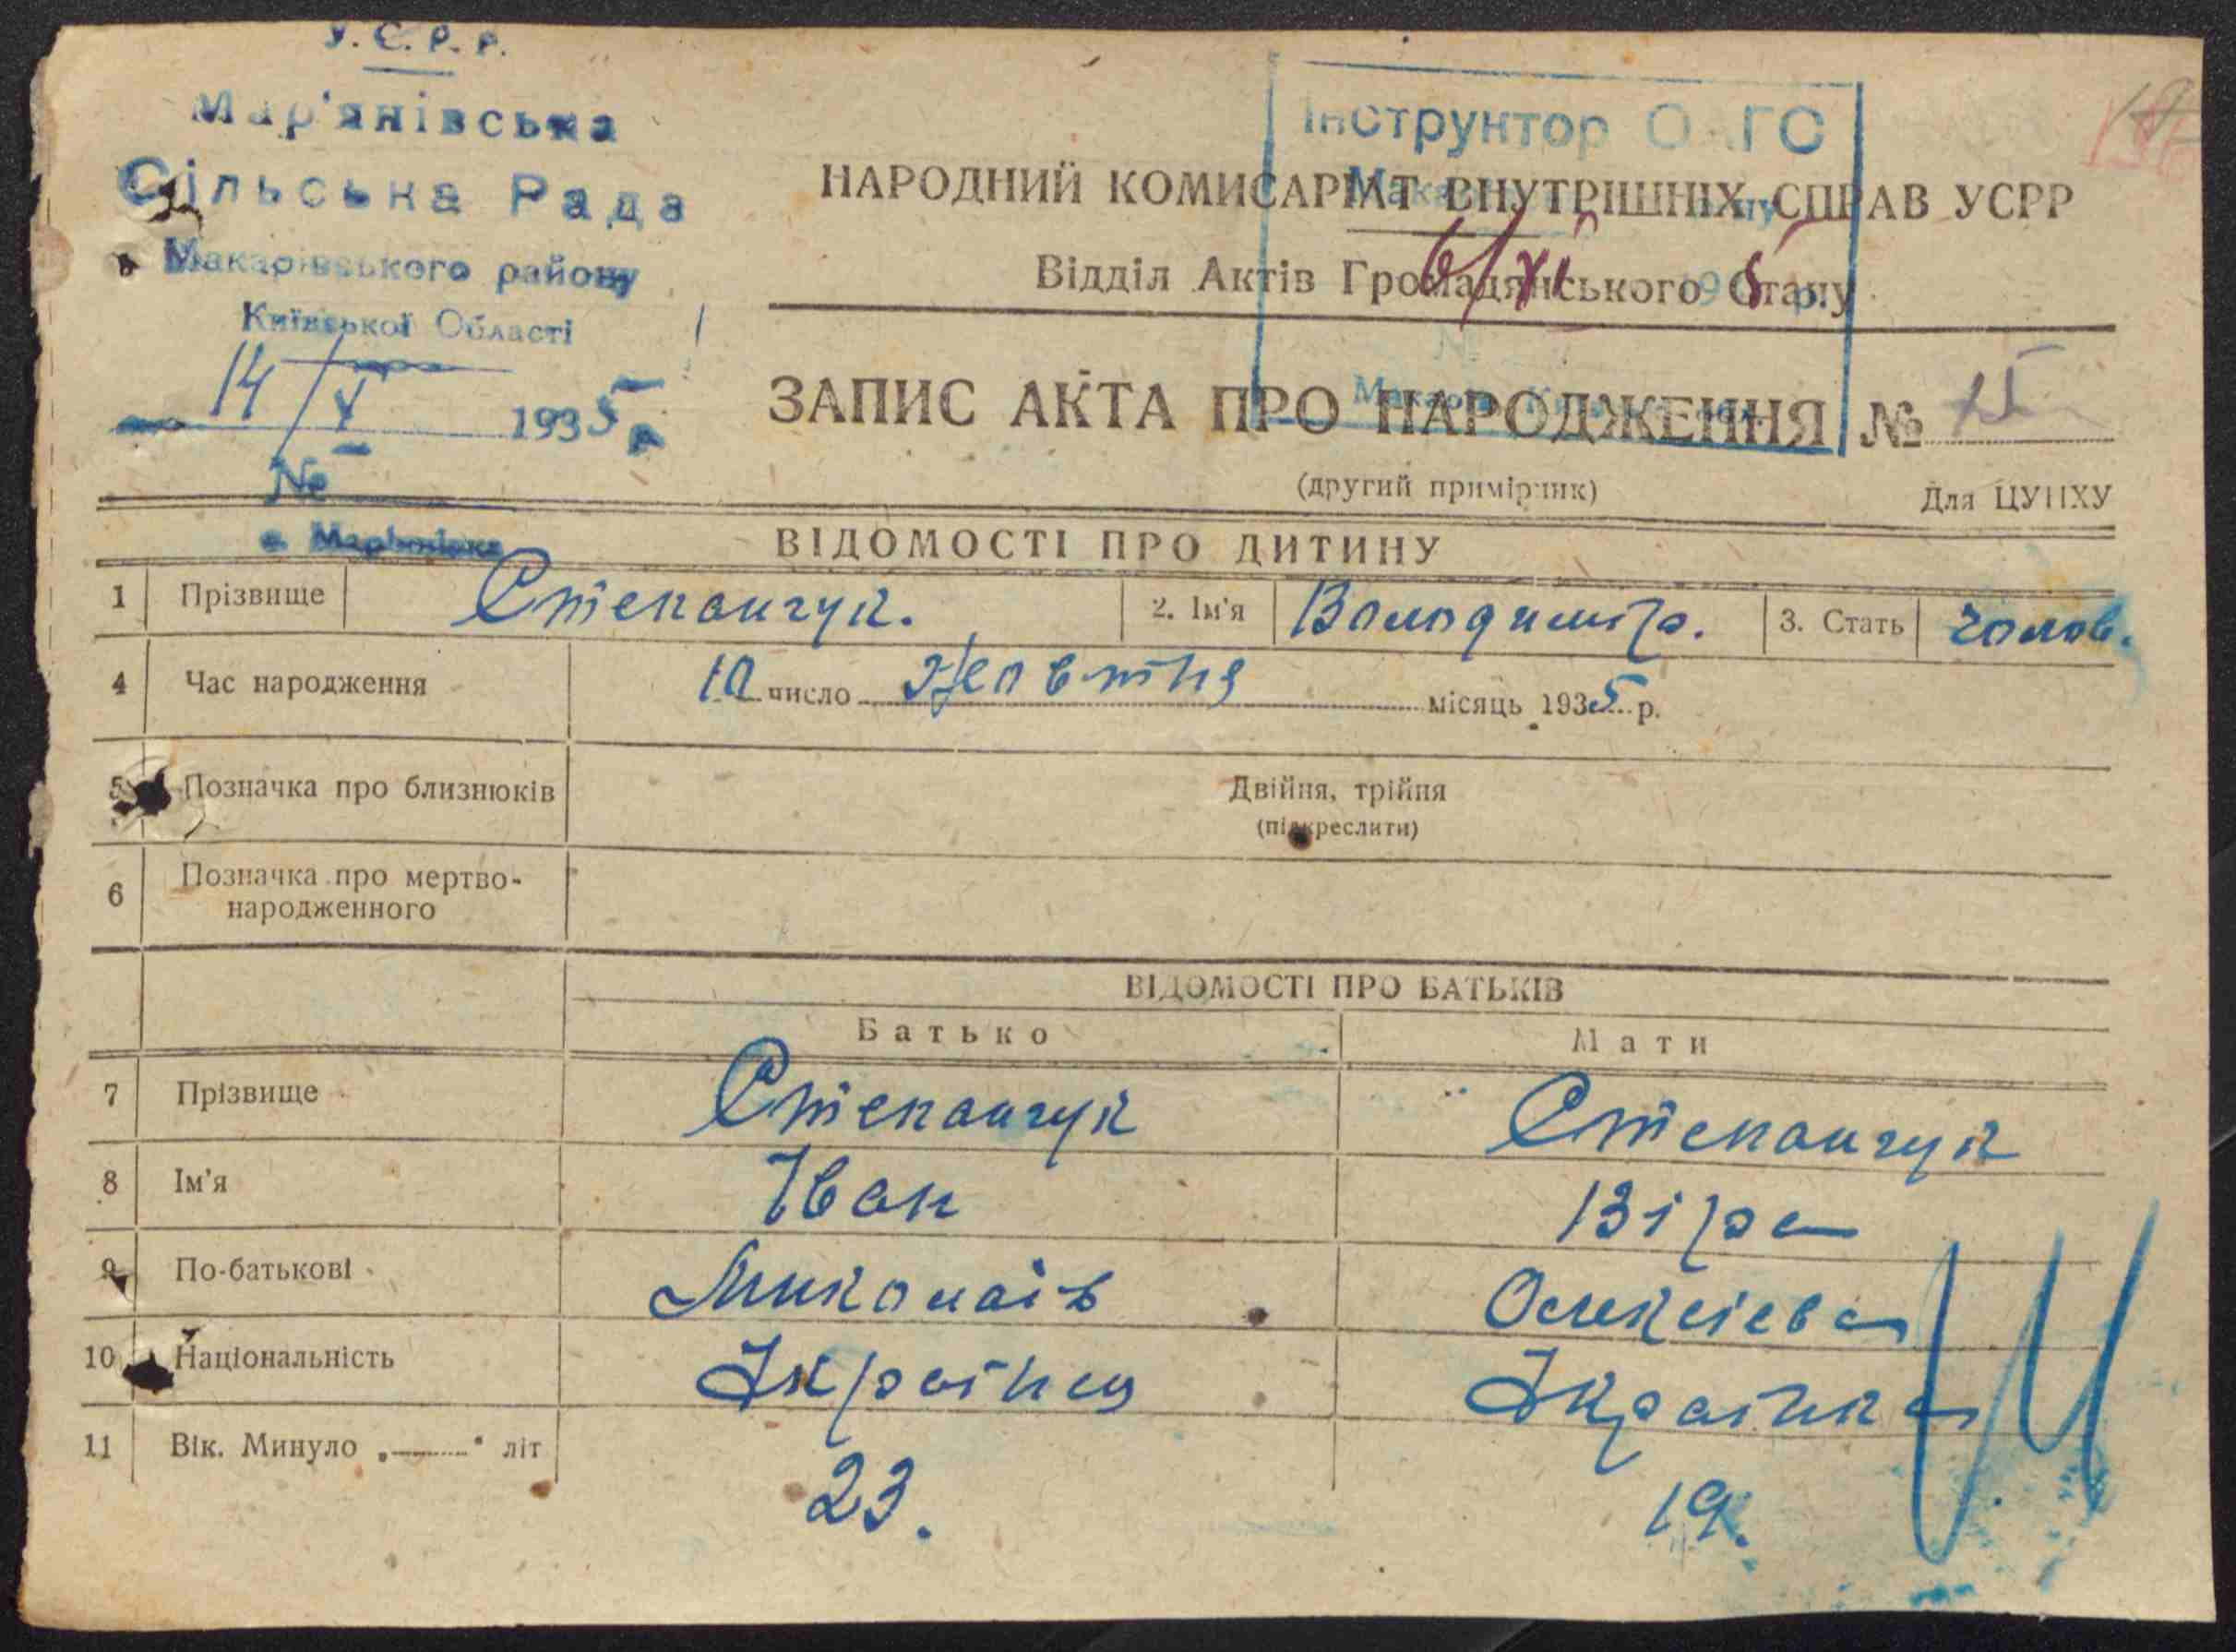 У.С.Р.Р.
Мар'янівська
Сільська Рада
Макарівського району
Київської Області
14/X 1935 р.
№
с. Мар'янівка
Інструктор ГС
6/XI 5
НАРОДНИЙ КОМИСАРІЯТ ВНУТРІШНІХ СПРАВ УСРР
Відділ Актів Громадянського Стану
ЗАПИС АКТА ПРО НАРОДЖЕННЯ № 75
(другий примірник) Для ЦУНХУ
ВІДОМОСТІ ПРО ДИТИНУ
1 Прізвище Степанчук. 2. Ім'я Володимір. 3. Стать чолов.
4 Час народження 10 число Жовтня місяць 1935 р.
5 Позначка про близнюків Двійня, трійня
(підкреслити)
6 Позначка про мертво-
народженного
ВІДОМОСТІ ПРО БАТЬКІВ
Батько Мати
7 Прізвище Степанчук Степанчук
8 Ім'я Іван Віра
9 По-батькові Миколаїв Олексієва
10 Національність Українц Українка
11 Вік. Минуло „ " літ 23. 19.